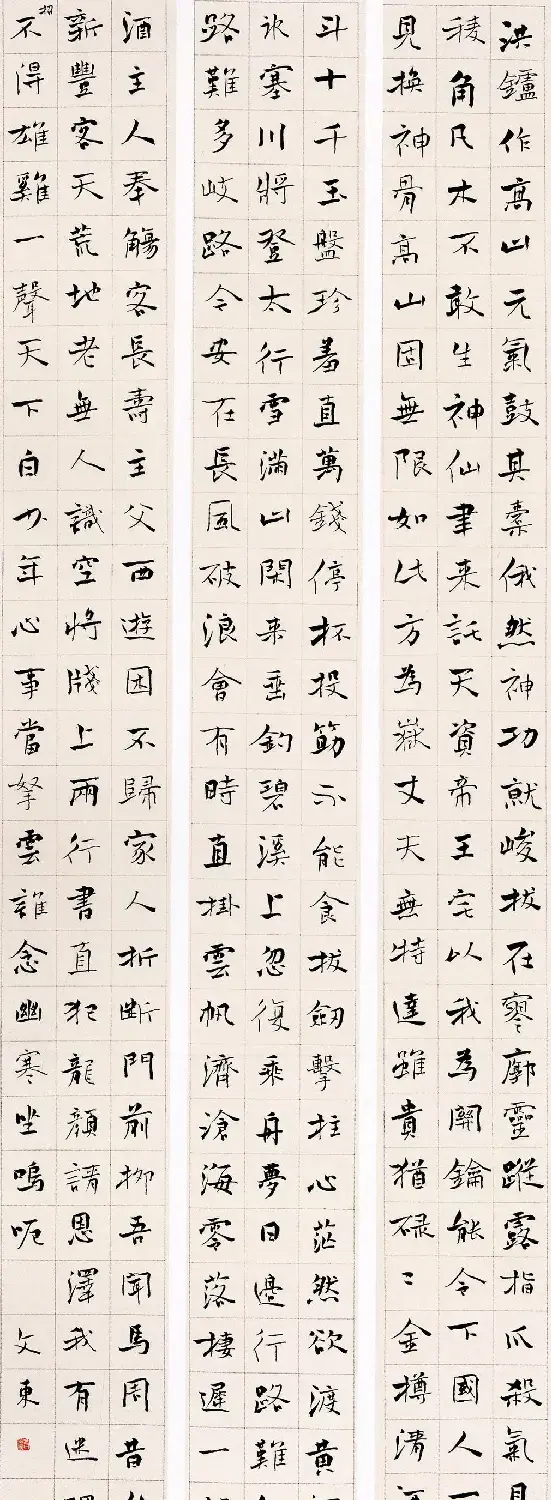 洪鑪作高山元氣鼓其橐俄然神功就峻拔在寥廓靈蹤露指爪殺氣見
稜角凡木不敢生神仙聿来託天資帝王宅以我為關鑰能令下國人一
見換神骨高山固無限如此方為嶽丈夫無特達雖貴猶碌〻金樽清
斗十千玉盤珍羞直萬錢停杯投筯不能食拔劔擊柱心茫然欲渡黄
冰塞川將登太行雪滿山閑来垂釣碧溪上忽復乘舟夢日邊行路難
路難多岐路今安在長風破浪會有時直掛雲帆濟滄海零落棲遲一
酒主人奉觴客長壽主父西遊困不歸家人折斷門前柳吾聞馬周昔
新豐客天荒地老無人識空將牋上兩行書直犯龍顔請恩澤我有迷
招不得雄雞一聲天下白少年心事當拏雲誰念幽寒坐嗚呃
文東